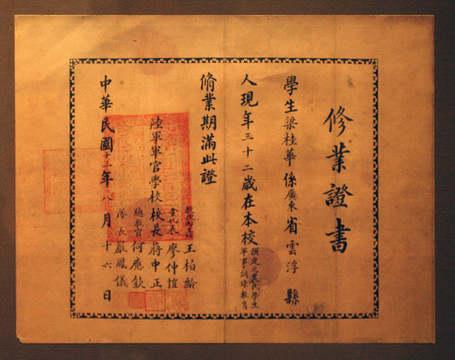 修業證書
學生梁桂華係廣東省雲浮縣
人現年三十二歲在本校
軍事訓練教育
脩業期滿此證
王柏齡
黨代表廖仲愷
陸軍軍官學校校長蔣中正
總教官何應欽
隊長嚴鳳儀
中華民國十三年八月十六日